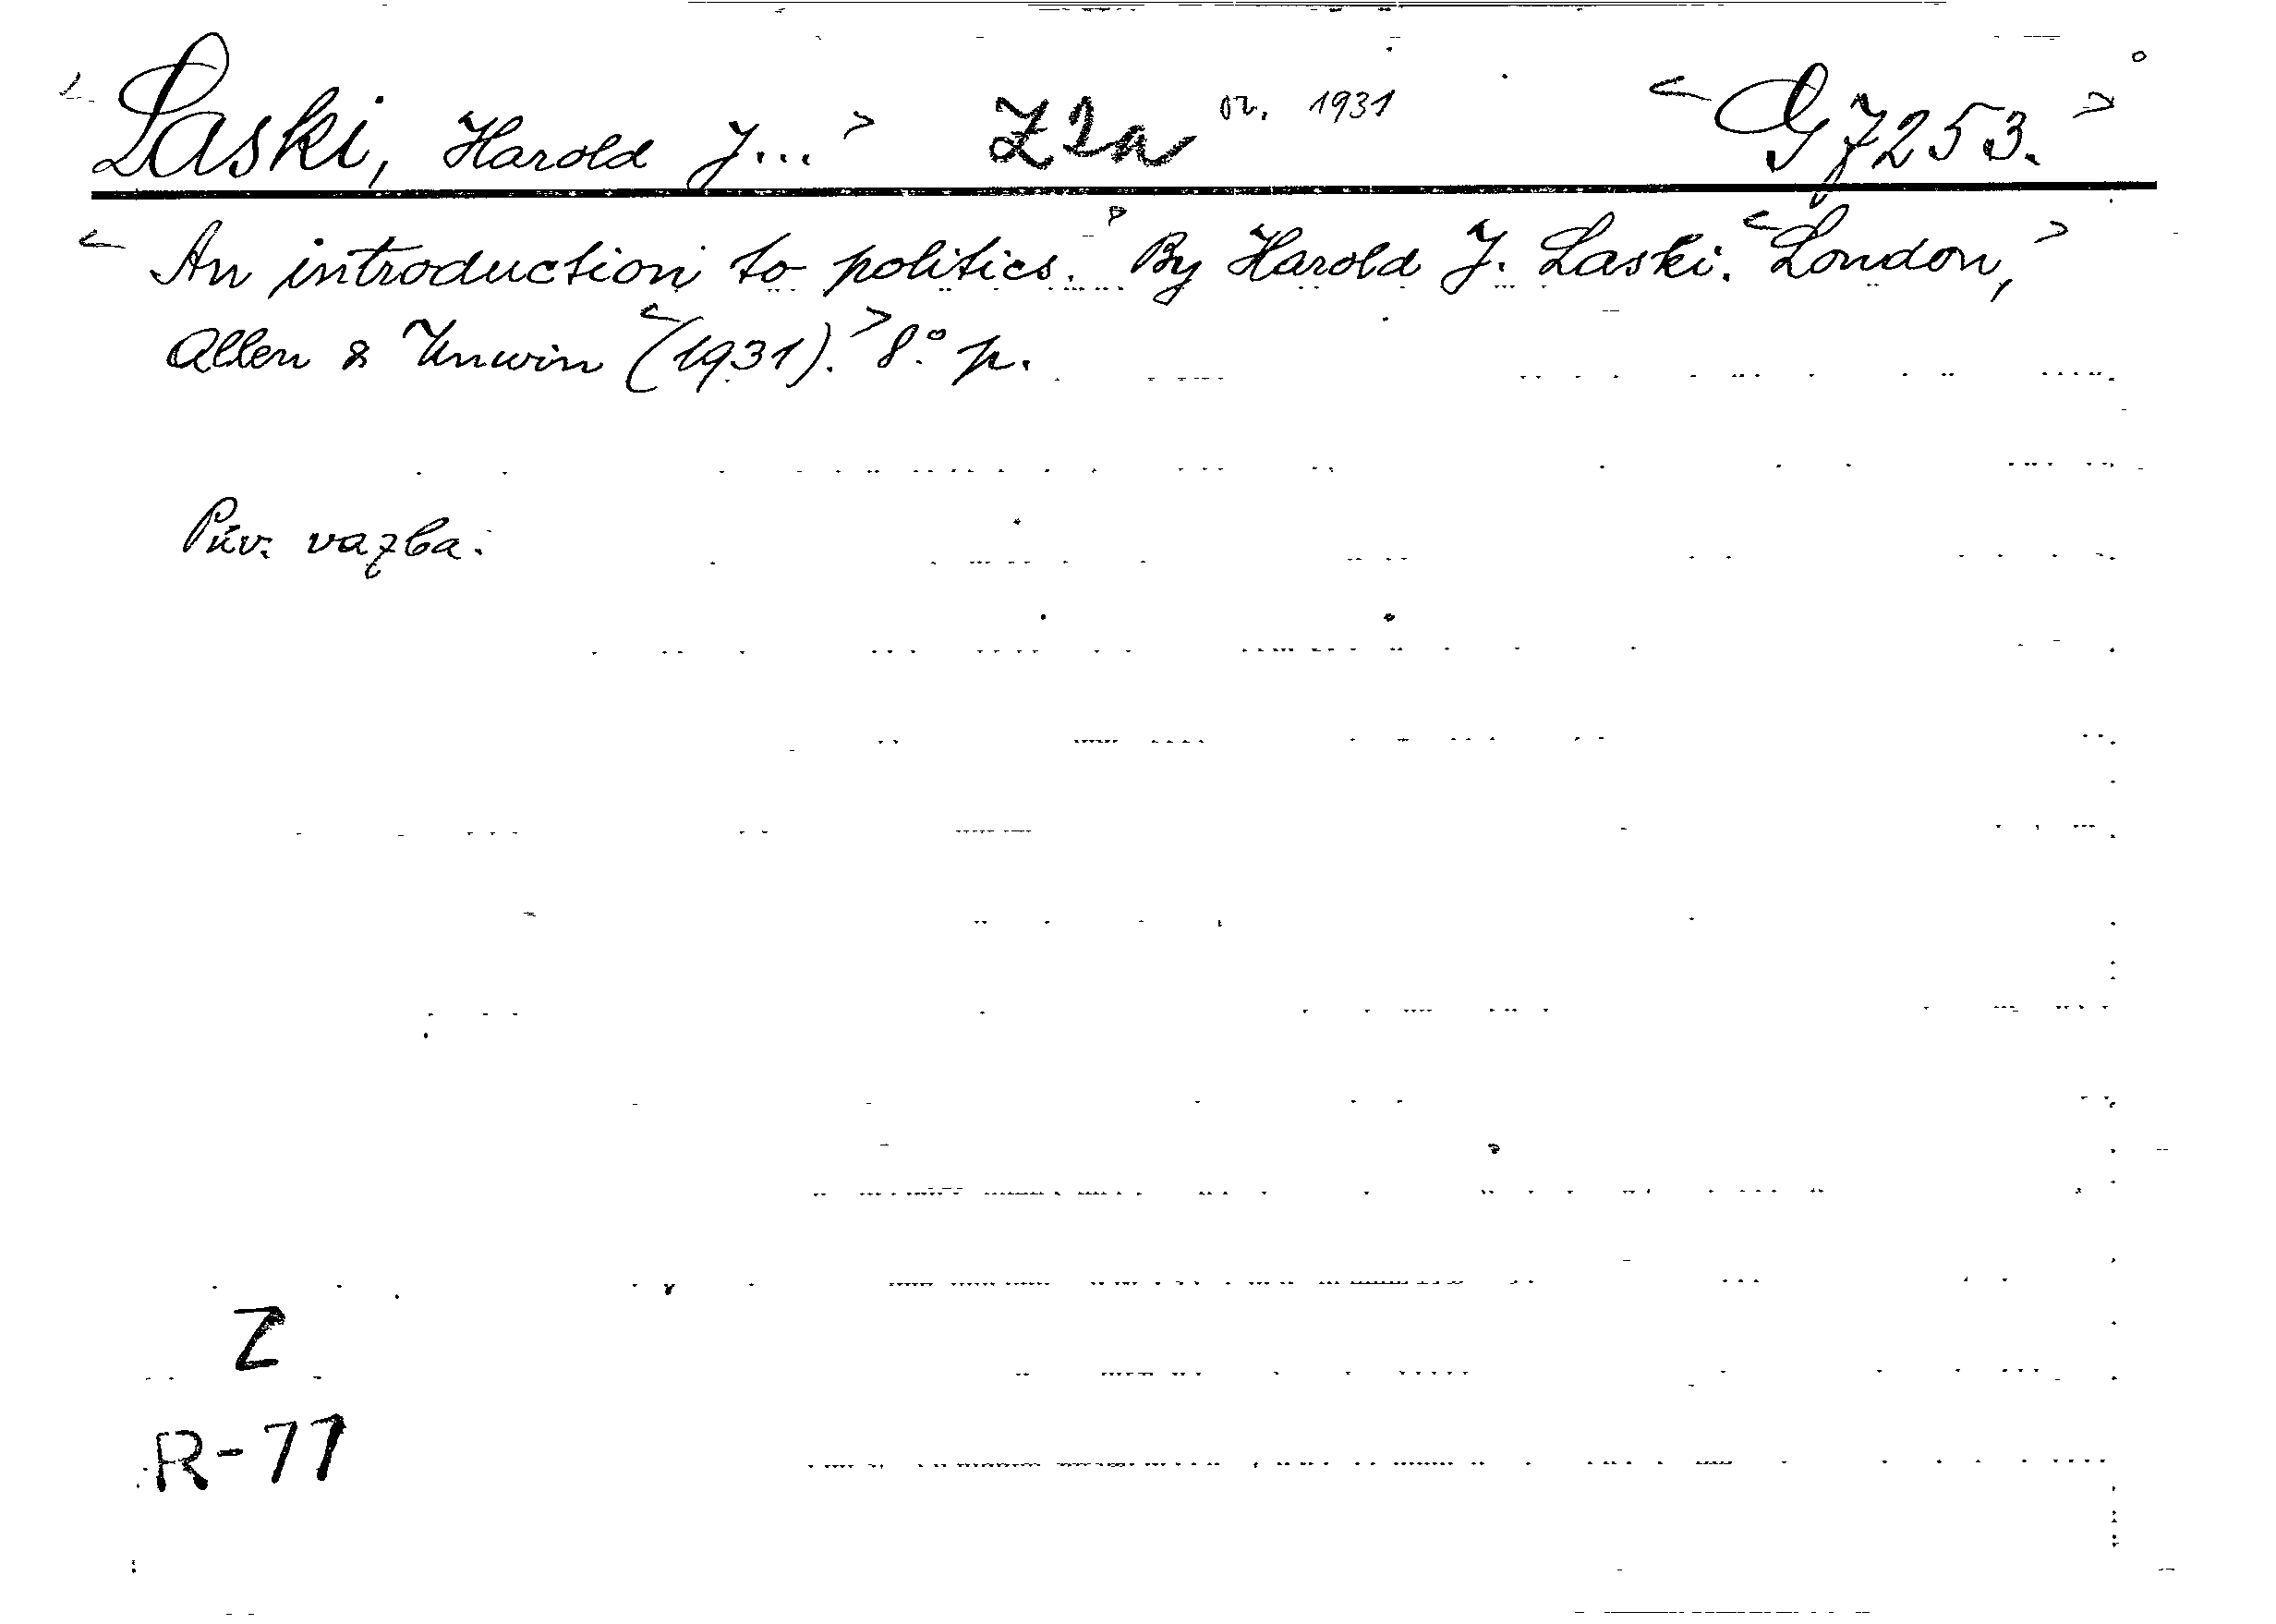 < Laski, Harold J... > Z2a 02. 1931 < G 7253. >
< An introduction to politics. > By Harold J. Laski. < London, >
Allen & Unwin < (1931). > 8° p.
Pův. vazba.
Z
R-77